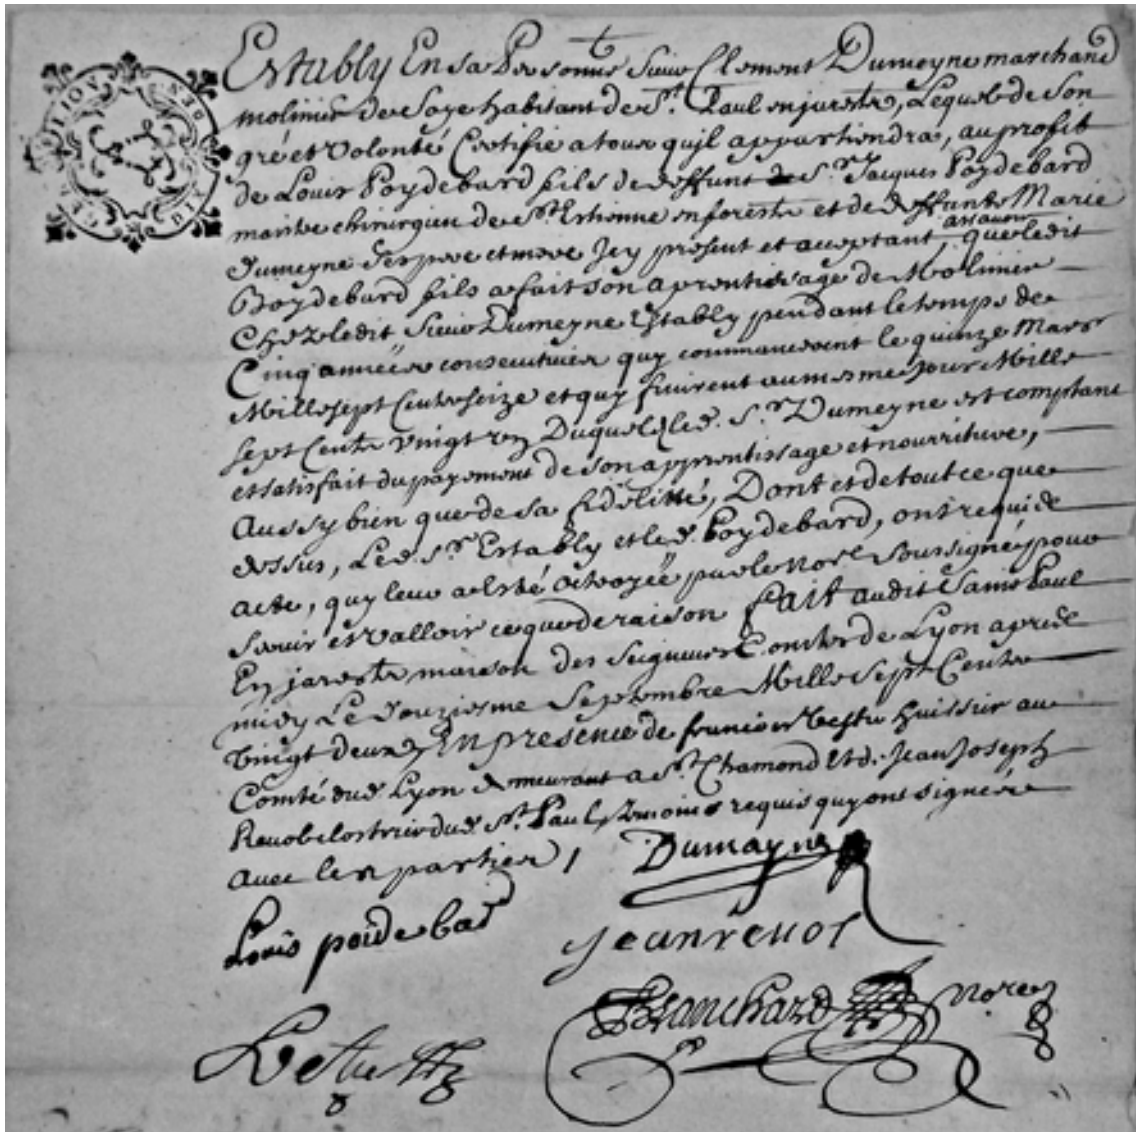 Estably En sa Personne Sieur Clement Dumeyne marchand
molinier de Soye habitant de St. Paul en jareste, Lequel de Son
gré et volonté Certifie a tous quil appartiendra, au profit
de Louis Poydebard fils de deffunt Sr. Jacques Poydebard
maitre chirurgien de St. Estienne en foreste et de deffunte Marie
Dumeyne Ses pere et mere Jcy present et aceptant, assavoir que ledit
Poydebard fils a fait son aprentissage de Molinier
Chez ledit Sieur Dumeyne Estably pendant le temps de
Cinq années consecutives quy commancerent le quinze Mars
Mille Sept Cents Seize et quy finirent au mesme Jour Mille
Sept Cents vingt un Duquel led. Sr. Dumeyne est comptant
et satisfait du payement de son apprentissage et nourriture,
Aussy bien que de sa fidelitté, Dont et de tout ce que
dessus, Led. Sr. Estably et led. Poydebard, ont requi de
acte, quy leur a Esté octroyée par le Nore. Soussigné pour
Servir et valloir ce que de raison fait audit Saint Paul
En jareste maison des Seigneurs Comtes de Lyon apres
midy Le Douziesme Septembre Mille Sept Cents
Vingt deux, En presence de francois Huissier au
Comté dud. Lyon demeurant a St. Chamond Et d. Jean Joseph
dud. St. Paul, temoins requis quy ont signé
avec les parties,
Dumayne
Louis poidebar
Jean revol
Blanchard Nore